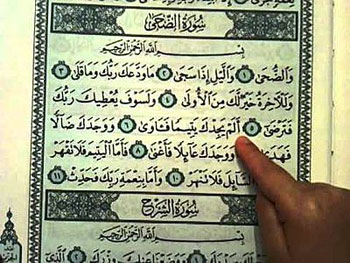 سُورَةُ الضُّحَىٰ
بِسْمِ اللَّهِ الرَّحْمَٰنِ الرَّحِيمِ
وَالضُّحَىٰ ١ وَاللَّيْلِ إِذَا سَجَىٰ ٢ مَا وَدَّعَكَ رَبُّكَ وَمَا قَلَىٰ ٣
وَلَلْآخِرَةُ خَيْرٌ لَّكَ مِنَ الْأُولَىٰ ٤ وَلَسَوْفَ يُعْطِيكَ رَبُّكَ
فَتَرْضَىٰ ٥ أَلَمْ يَجِدْكَ يَتِيمًا فَآوَىٰ ٦ وَوَجَدَكَ ضَالًّا
وَوَجَدَكَ عَائِلًا فَأَغْنَىٰ ٨ فَأَمَّا الْيَتِيمَ فَلَا تَقْهَرْ
السَّائِلَ فَلَا تَنْهَرْ ١٠ وَأَمَّا بِنِعْمَةِ رَبِّكَ فَحَدِّثْ ١١
سُورَةُ الشَّرْحِ
بِسْمِ اللَّهِ الرَّحْمَٰنِ الرَّحِيمِ